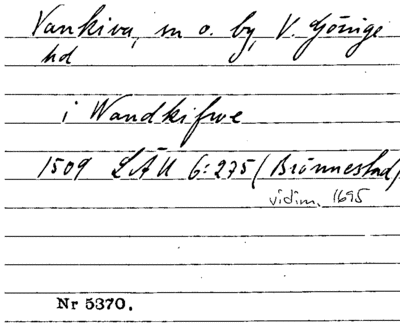 Vankiva, sn o. by, V. Göinge
hd
i Wandkifwe
1509 LÄU 6:275 (Brönnestad)
vidim. 1695
Nr 5370.